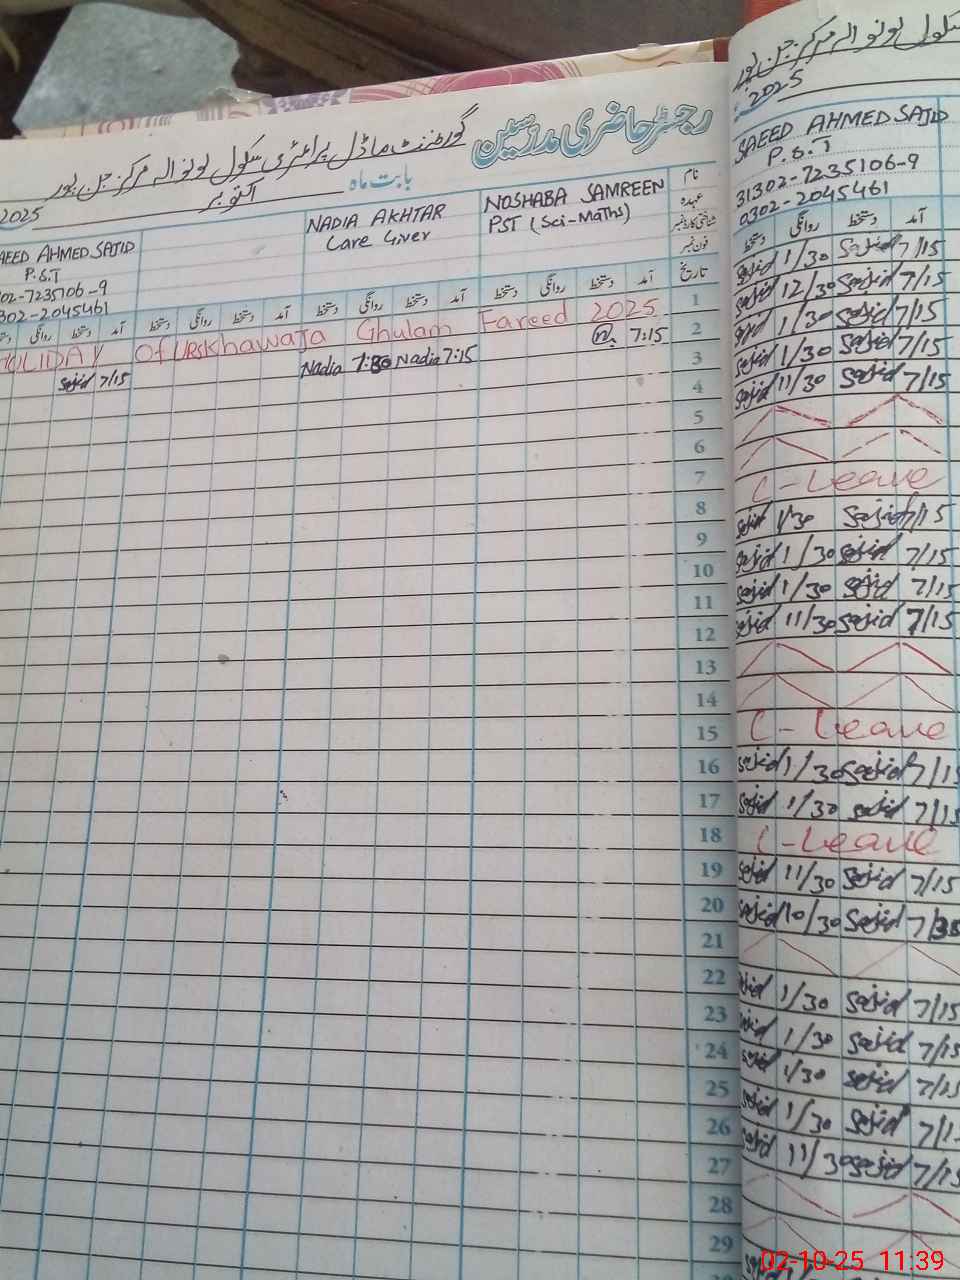 رجسٹر حاضری مدرسین
گورنمنٹ ماڈل پرائمری سکول لونوالہ مرکز جن پور
بابت ماہ اکتوبر 2025
نام
عہدہ
شناختی کارڈ نمبر
فون نمبر
NOSHABA SAMREEN
PST (Sci-Maths)
NADIA AKHTAR
Care Giver
AEED AHMED SAJID
P.S.T
02-7235106-9
302-2045461
تاریخ آمد دستخط روانگی دستخط آمد دستخط روانگی دستخط آمد دستخط روانگی دستخط آمد دستخط روانگی
1 HOLIDAY Of URS Khawaja Ghulam Fareed 2025
2 7:15 Nadia 7:15 Nadia 7:30 Sajid 7/15
3
4
5
6
7
8
9
10
11
12
13
14
15
16
17
18
19
20
21
22
23
24
25
26
27
28
29
سکول لونوالہ مرکز جن پور
2025
SAEED AHMED SAJID
P.S.T
31302-7235106-9
0302-2045461
آمد دستخط روانگی دستخط
Sajid 1/30 Sajid 7/15
Sajid 12/30 Sajid 7/15
Sajid 1/30 Sajid 7/15
Sajid 1/30 Sajid 7/15
Sajid 11/30 Sajid 7/15
C-Leave
Sajid 1/30 Sajid 7/15
Sajid 1/30 Sajid 7/15
Sajid 1/30 Sajid 7/15
Sajid 11/30 Sajid 7/15
C-Leave
Sajid 1/30 Sajid 7/15
Sajid 1/30 Sajid 7/15
C-Leave
Sajid 11/30 Sajid 7/15
Sajid 10/30 Sajid 7/35
Sajid 1/30 Sajid 7/15
Sajid 1/30 Sajid 7/15
Sajid 1/30 Sajid 7/15
Sajid 1/30 Sajid 7/1
Sajid 11/30 Sajid 7/15
02-10-25 11:39